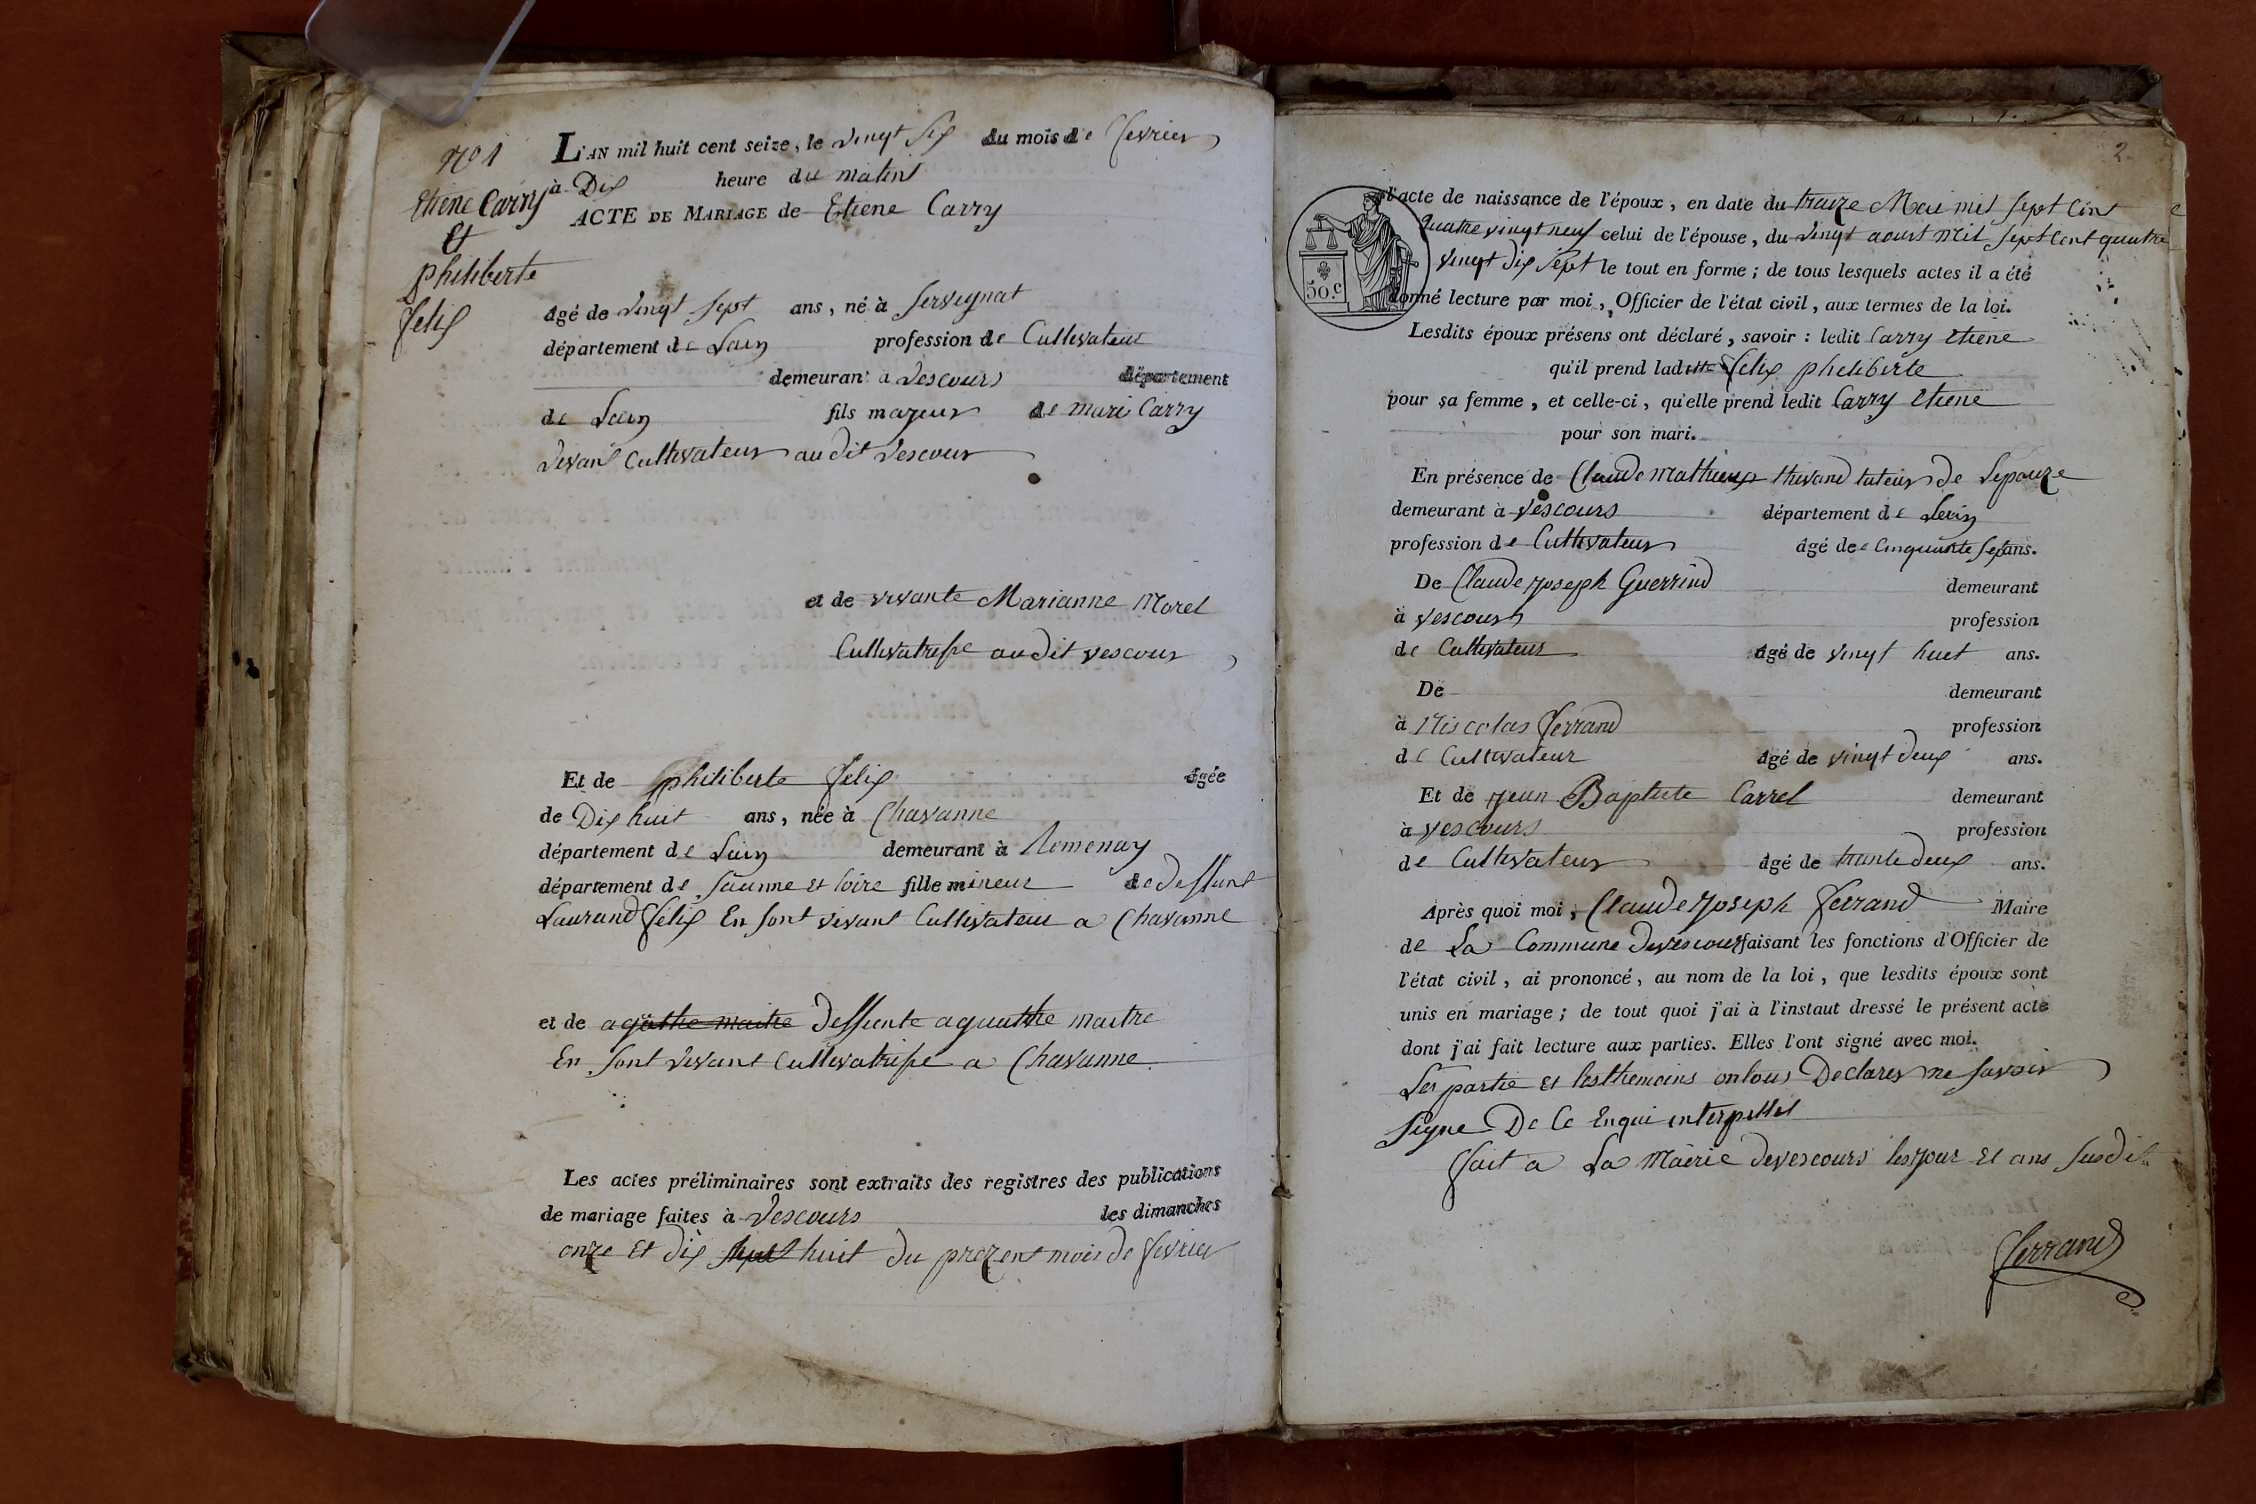 N° 1
Etiene Carry
Et
philiberte
felix
L'AN mil huit cent seize, le vingt six du mois de fevrier
à Dix heure du matin
ACTE DE MARIAGE de Etiene Carry
âgé de vingt sept ans, né à Servignat
département de Lain profession de Cultivateur
demeurant à vescours département
de Lain fils majeur de marie Carry
vivant Cultivateur au dit vescour
et de vivante Marianne Morel
Cultivatrisse au dit vescour
Et de philiberte felix âgée
de Dix huit ans, née à Chavanne
département de Lain demeurant à Romenay
département de Saunne et loire fille mineur de deffunt
Laurand félix En sont vivant Cultivateur a Chavanne
et de agathe maitre deffunte aguathe maitre
En sont vivant Cultivatrisse a Chavanne
Les actes préliminaires sont extraits des registres des publications
de mariage faites à vescours les dimanches
onze et dix huit du prezent mois de fevrier
2
50.c
l'acte de naissance de l'époux, en date du traize Mai mil sept cent
quatre vingt neuf celui de l'épouse, du vingt aoust mil sept cent quatre
vingt dix sept le tout en forme; de tous lesquels actes il a été
donné lecture par moi, Officier de l'état civil, aux termes de la loi.
Lesdits époux présens ont déclaré, savoir: ledit Carry etiene
qu'il prend ladite felix pheliberte
pour sa femme, et celle-ci, qu'elle prend ledit Carry etiene
pour son mari.
En présence de Claude Mathieux thivand tuteur de Lepouze
demeurant à vescours département de Lain
profession de Cultivateur âgé de Cinquante sept ans.
De Claude Joseph Guerrind demeurant
à vescours profession
de Cultivateur âgé de vingt huit ans.
De demeurant
à Niscolas ferrand profession
de Cultivateur âgé de vingt deux ans.
Et de jean Baptiste Carrel demeurant
à vescours profession
de Cultivateur âgé de trante deux ans.
Après quoi moi, Claude Joseph ferrand Maire
de La Commune devescour faisant les fonctions d'Officier de
l'état civil, ai prononcé, au nom de la loi, que lesdits époux sont
unis en mariage; de tout quoi j'ai à l'instaut dressé le présent acte
dont j'ai fait lecture aux parties. Elles l'ont signé avec moi.
Les partie et lesthemoins ontous Declarer ne savoir
signe De Ce Enqui interpellet
fait a La Mairie devescours les jour et ans susdit
ferrand